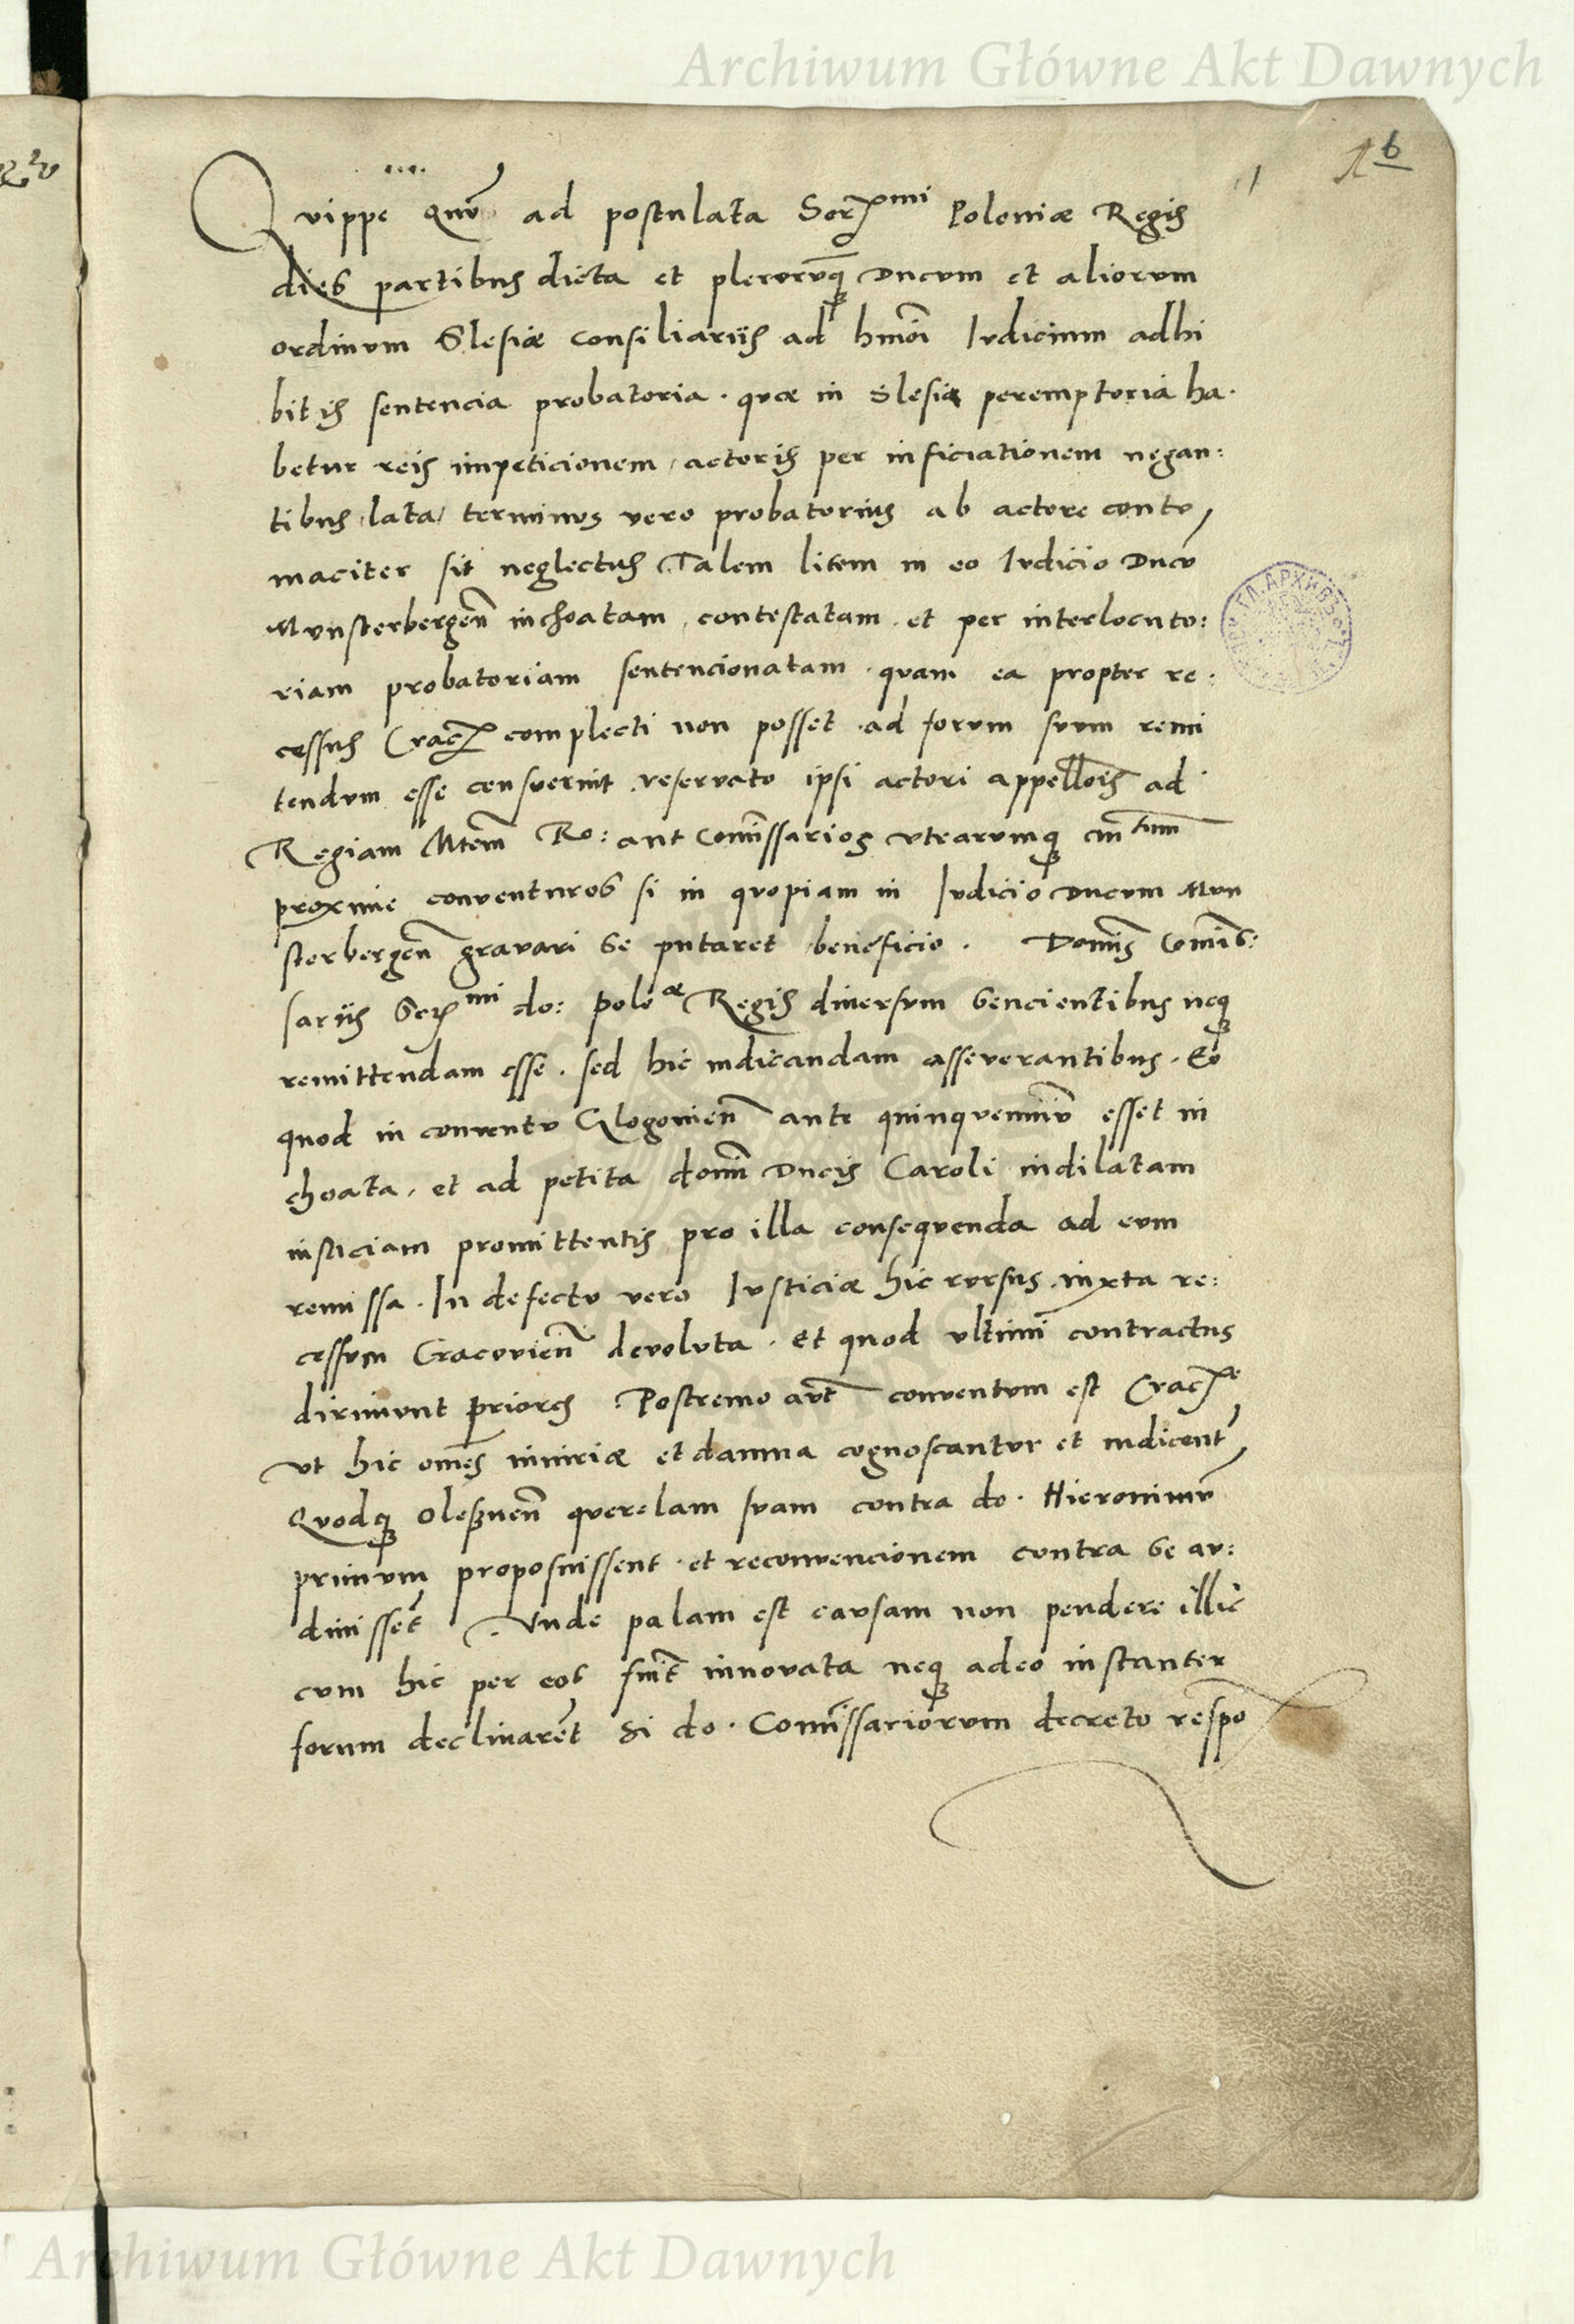 Archiwum Główne Akt Dawnych
16
Qvippe qnũ ad postulata Serᵐⁱ Poloniæ Regis
dies partibus dicta et pleroruq̃ Ducum et aliorvm
ordinvm Slesiæ consiliariis ad hmõi Ivdicium adhi
bitis sentencia probatoria . qvæ in Slesia peremptoria ha.
betur reis impeticionem actoris per inficiationem negan:
tibus lata terminvs vero probatorius ab actore contv
maciter sit neglectus Talem litem in eo Ivdicio Ducũ
Mvnsterbergeñ inchoatam , contestatam . et per interlocuto:
riam probatoriam sentencionatam . qvam ea propter re:
cessus Crac̃ complecti non posset . ad forvm svvm remi
tendvm esse censverint . reservato ipsi actori appellõis ad
Regiam Mtem̃ Ro: aut Com̃issarios vtrarvmq̃ m̃tum
proxime conventuros si in qvopiam in Ivdicio Ducvm Mvn
sterbergeñ gravari se putaret beneficio . Domĩs Com̃is:
sariis Serᵐⁱ do: Poloæ Regis diversvm sencientibus neq̃
remittendam esse . sed hic iudicandam asseverantibus . Eo
quod in conventv Glogovieñ ante quinqvenniũ esset in
choata , et ad petita domĩ Ducis Caroli indilatam
iusticiam promittentis pro illa conseqvenda ad evm
remissa . In defectv vero Ivsticiæ hic rvrsus iuxta re:
cessvm Cracovieñ devolvta . et quod vltimĩ contractus
dirimvnt priores . Postremo avt̃ conventvm est Crac̃ᵉ
vt hic om̃es iniuriæ et damna cognoscantvr et iudicent̃
Qvodq̃ Olesneñ qverelam svam contra do . Hieronimũ
primvm proposuissent . et reconvencionem contra se av:
divisset̃ . Vnde palam est cavsam non pendere illic
cvm hic per eos sint̃ innovata neq̃ adeo instanter
forum declinarẽt si do . Com̃issariorvm decreto respo
Archiwum Główne Akt Dawnych